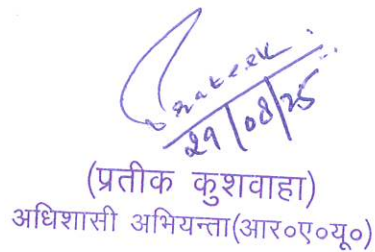 Prateek
29/08/25
(प्रतीक कुशवाहा)
अधिशासी अभियन्ता(आर०ए०यू०)